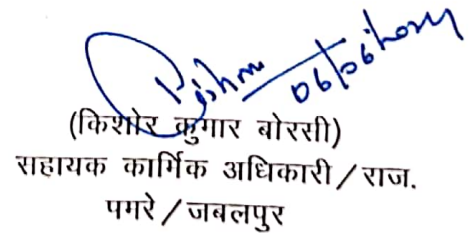 06/06/2024
(किशोर कुमार बोरसी)
सहायक कार्मिक अधिकारी/राज.
पमरे/जबलपुर